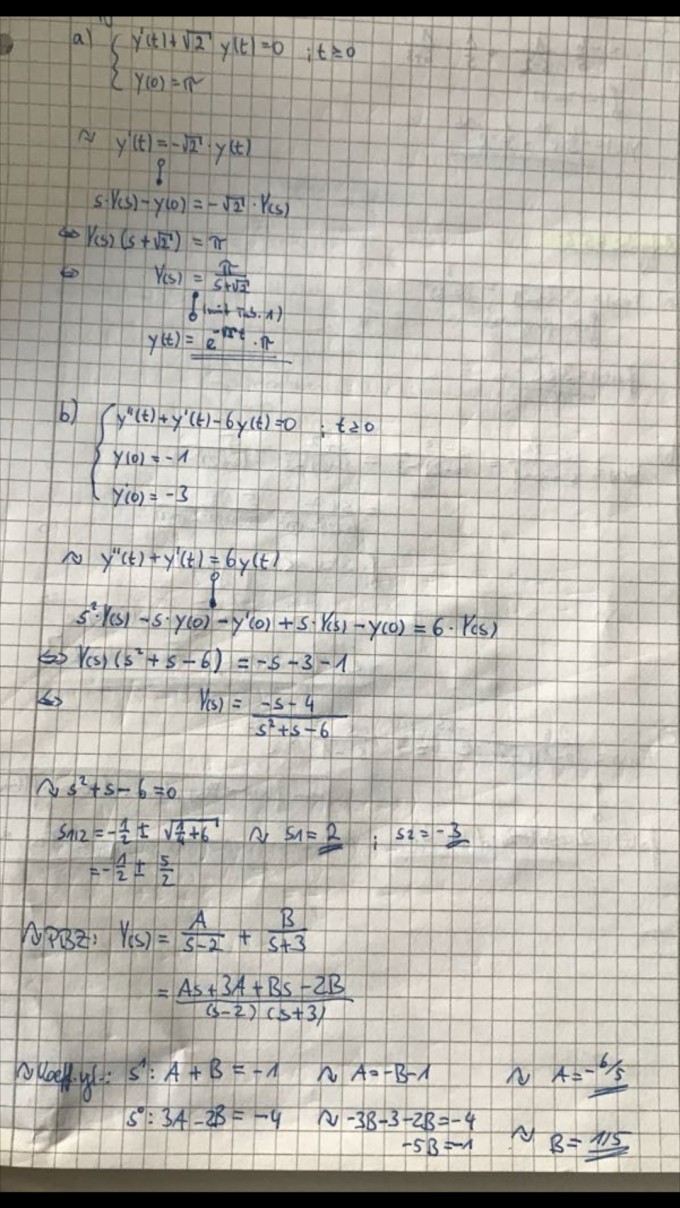 a) { y'(t) + √2 y(t) = 0 ; t ≥ 0
y(0) = π
~> y'(t) = -√2 · y(t)
s·Y(s) - y(0) = -√2 · Y(s)
<=> Y(s) (s + √2) = π
<=> Y(s) = π / (s+√2)
(mit Tab. 1)
y(t) = e^(-√2 t) · π
b) { y''(t) + y'(t) - 6y(t) = 0 ; t ≥ 0
y(0) = -1
y'(0) = -3
~> y''(t) + y'(t) = 6y(t)
s²·Y(s) - s·y(0) - y'(0) + s·Y(s) - y(0) = 6·Y(s)
<=> Y(s) (s² + s - 6) = -s - 3 - 1
<=> Y(s) = (-s - 4) / (s² + s - 6)
~> s² + s - 6 = 0
s1/2 = -1/2 ± √(1/4 + 6) ~> s1 = 2 ; s2 = -3
= -1/2 ± 5/2
~> PBZ: Y(s) = A/(s-2) + B/(s+3)
= (As + 3A + Bs - 2B) / ((s-2) (s+3))
~> Koeff.vgl.: s¹: A + B = -1 ~> A = -B-1 ~> A = -6/5
s⁰: 3A - 2B = -4 ~> -3B-3-2B = -4
-5B = -1 ~> B = 1/5